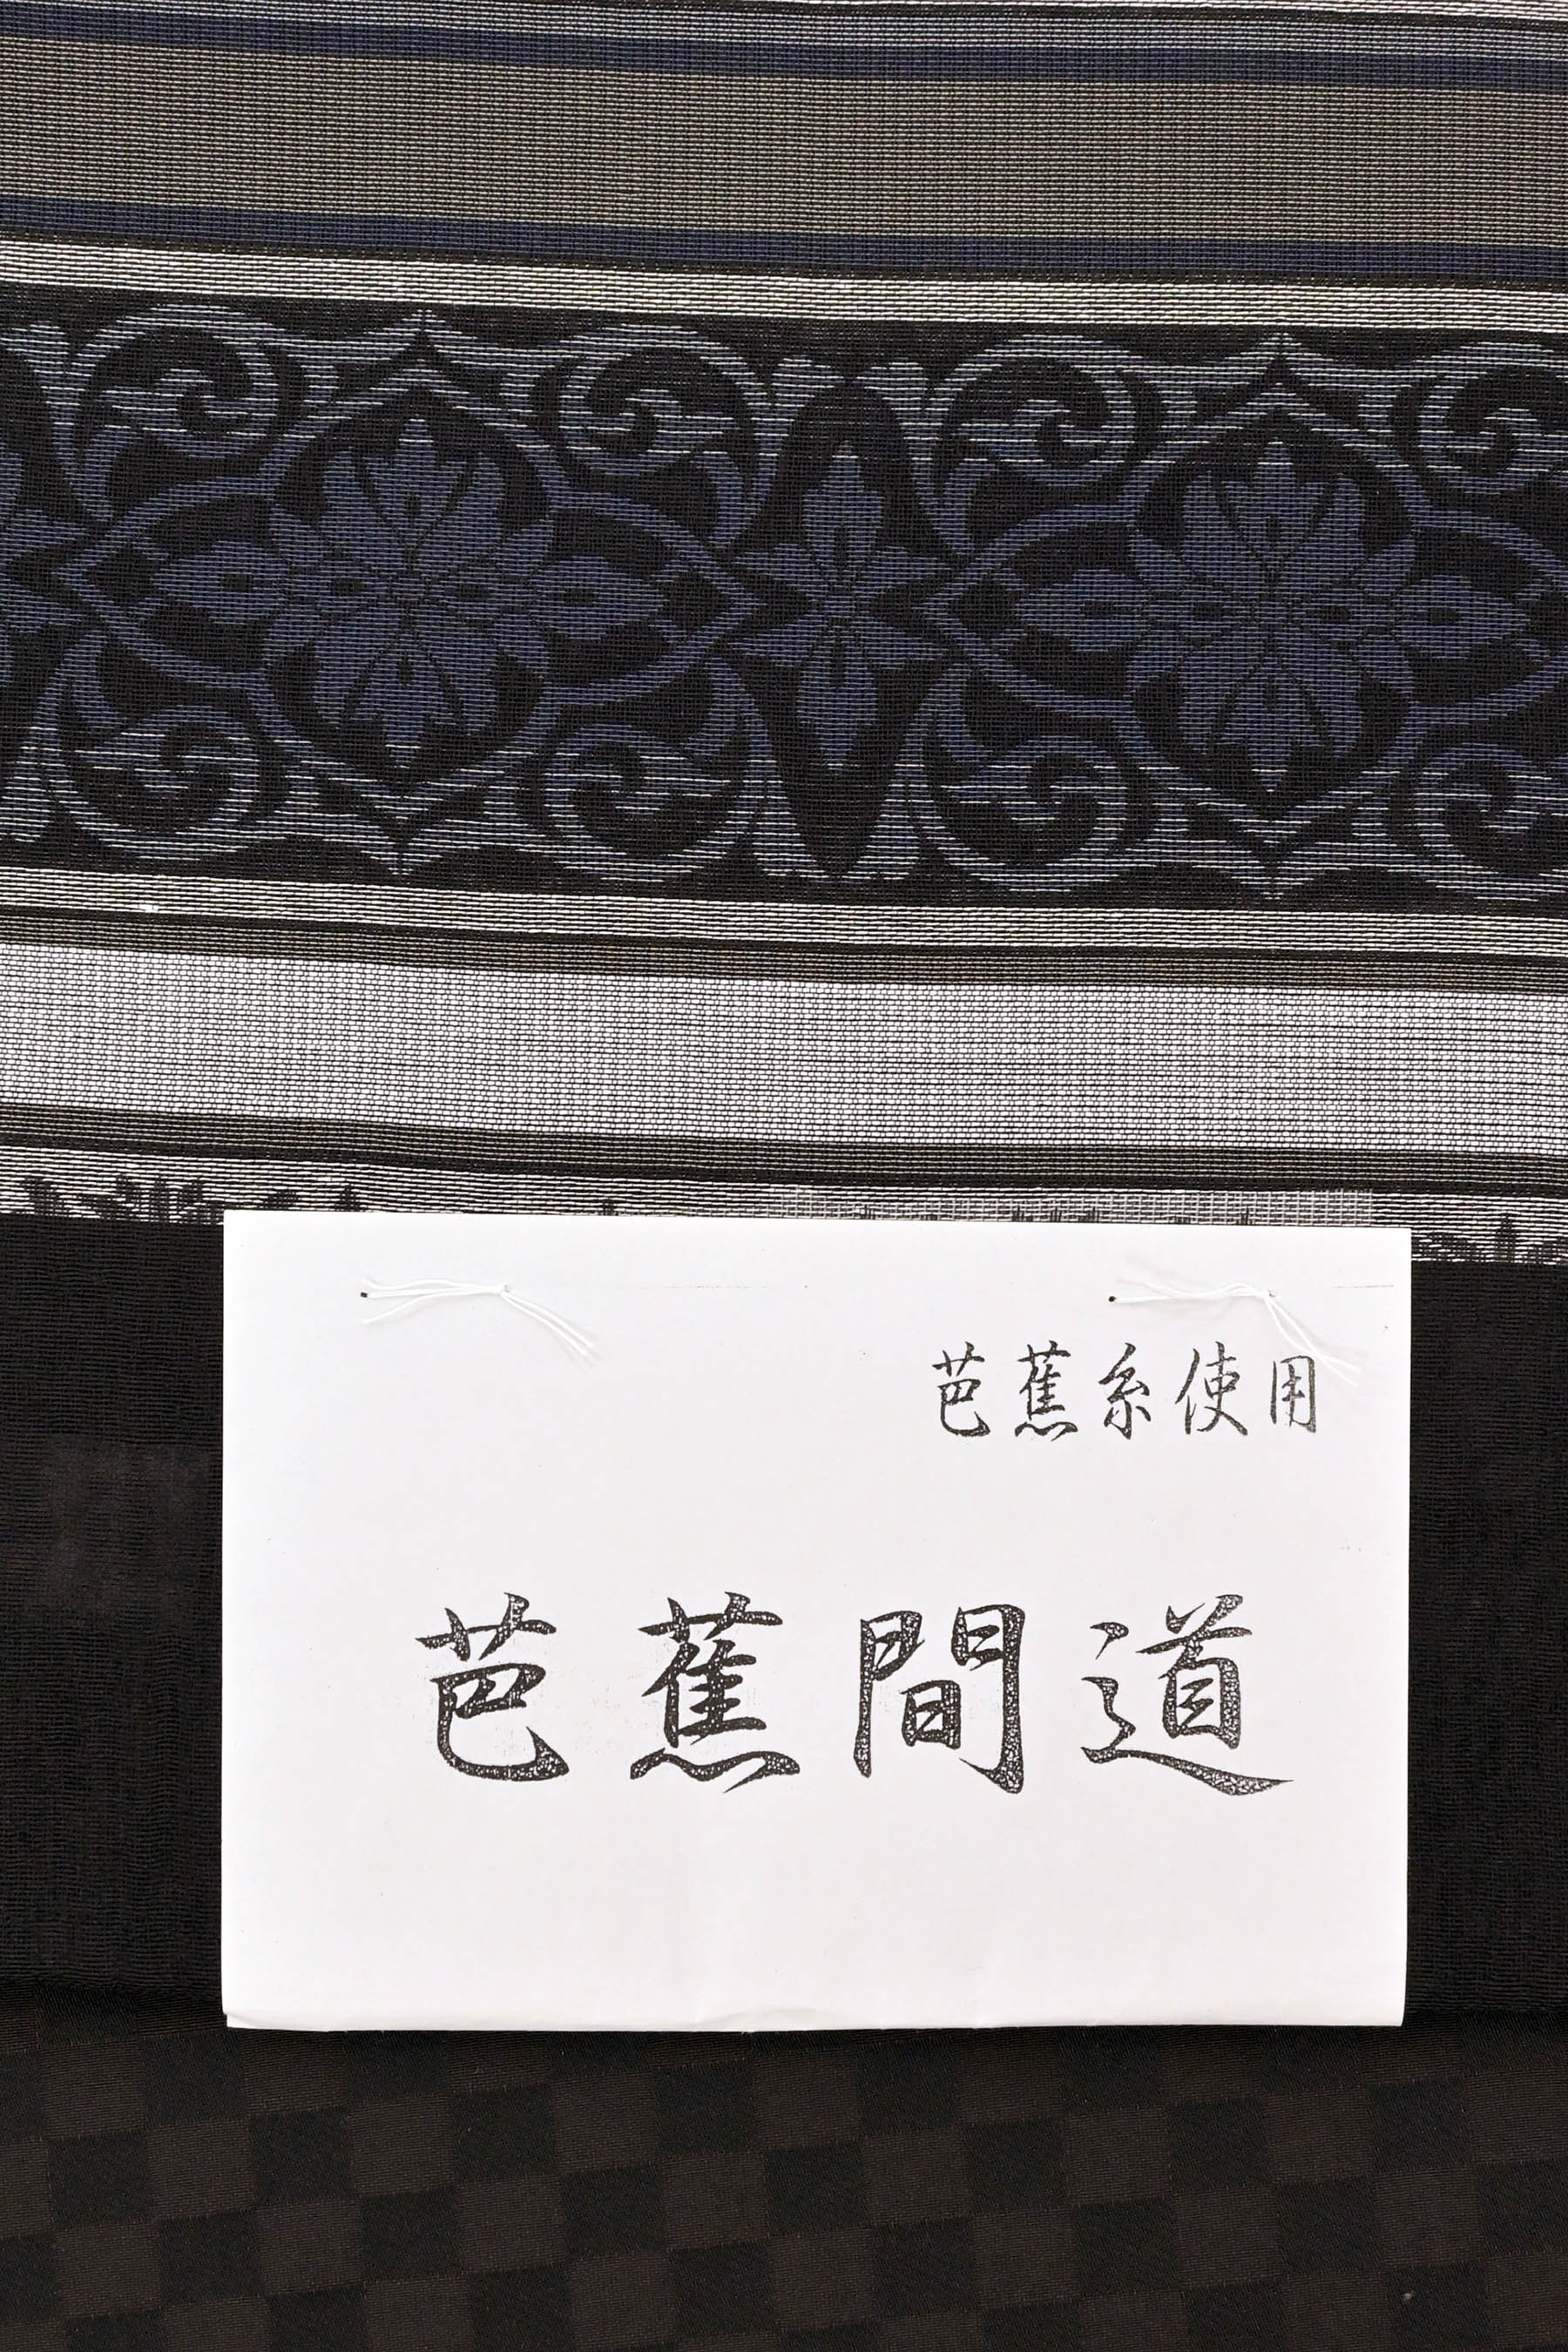 芭蕉糸使用
芭蕉間道